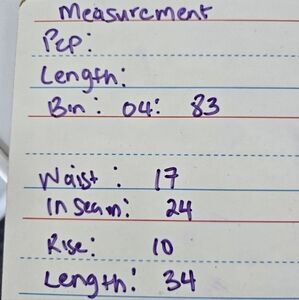 Measurement
Pcp:
Length:
Bin: 04: 83
Waist: 17
Inseam: 24
Rise: 10
Length: 34